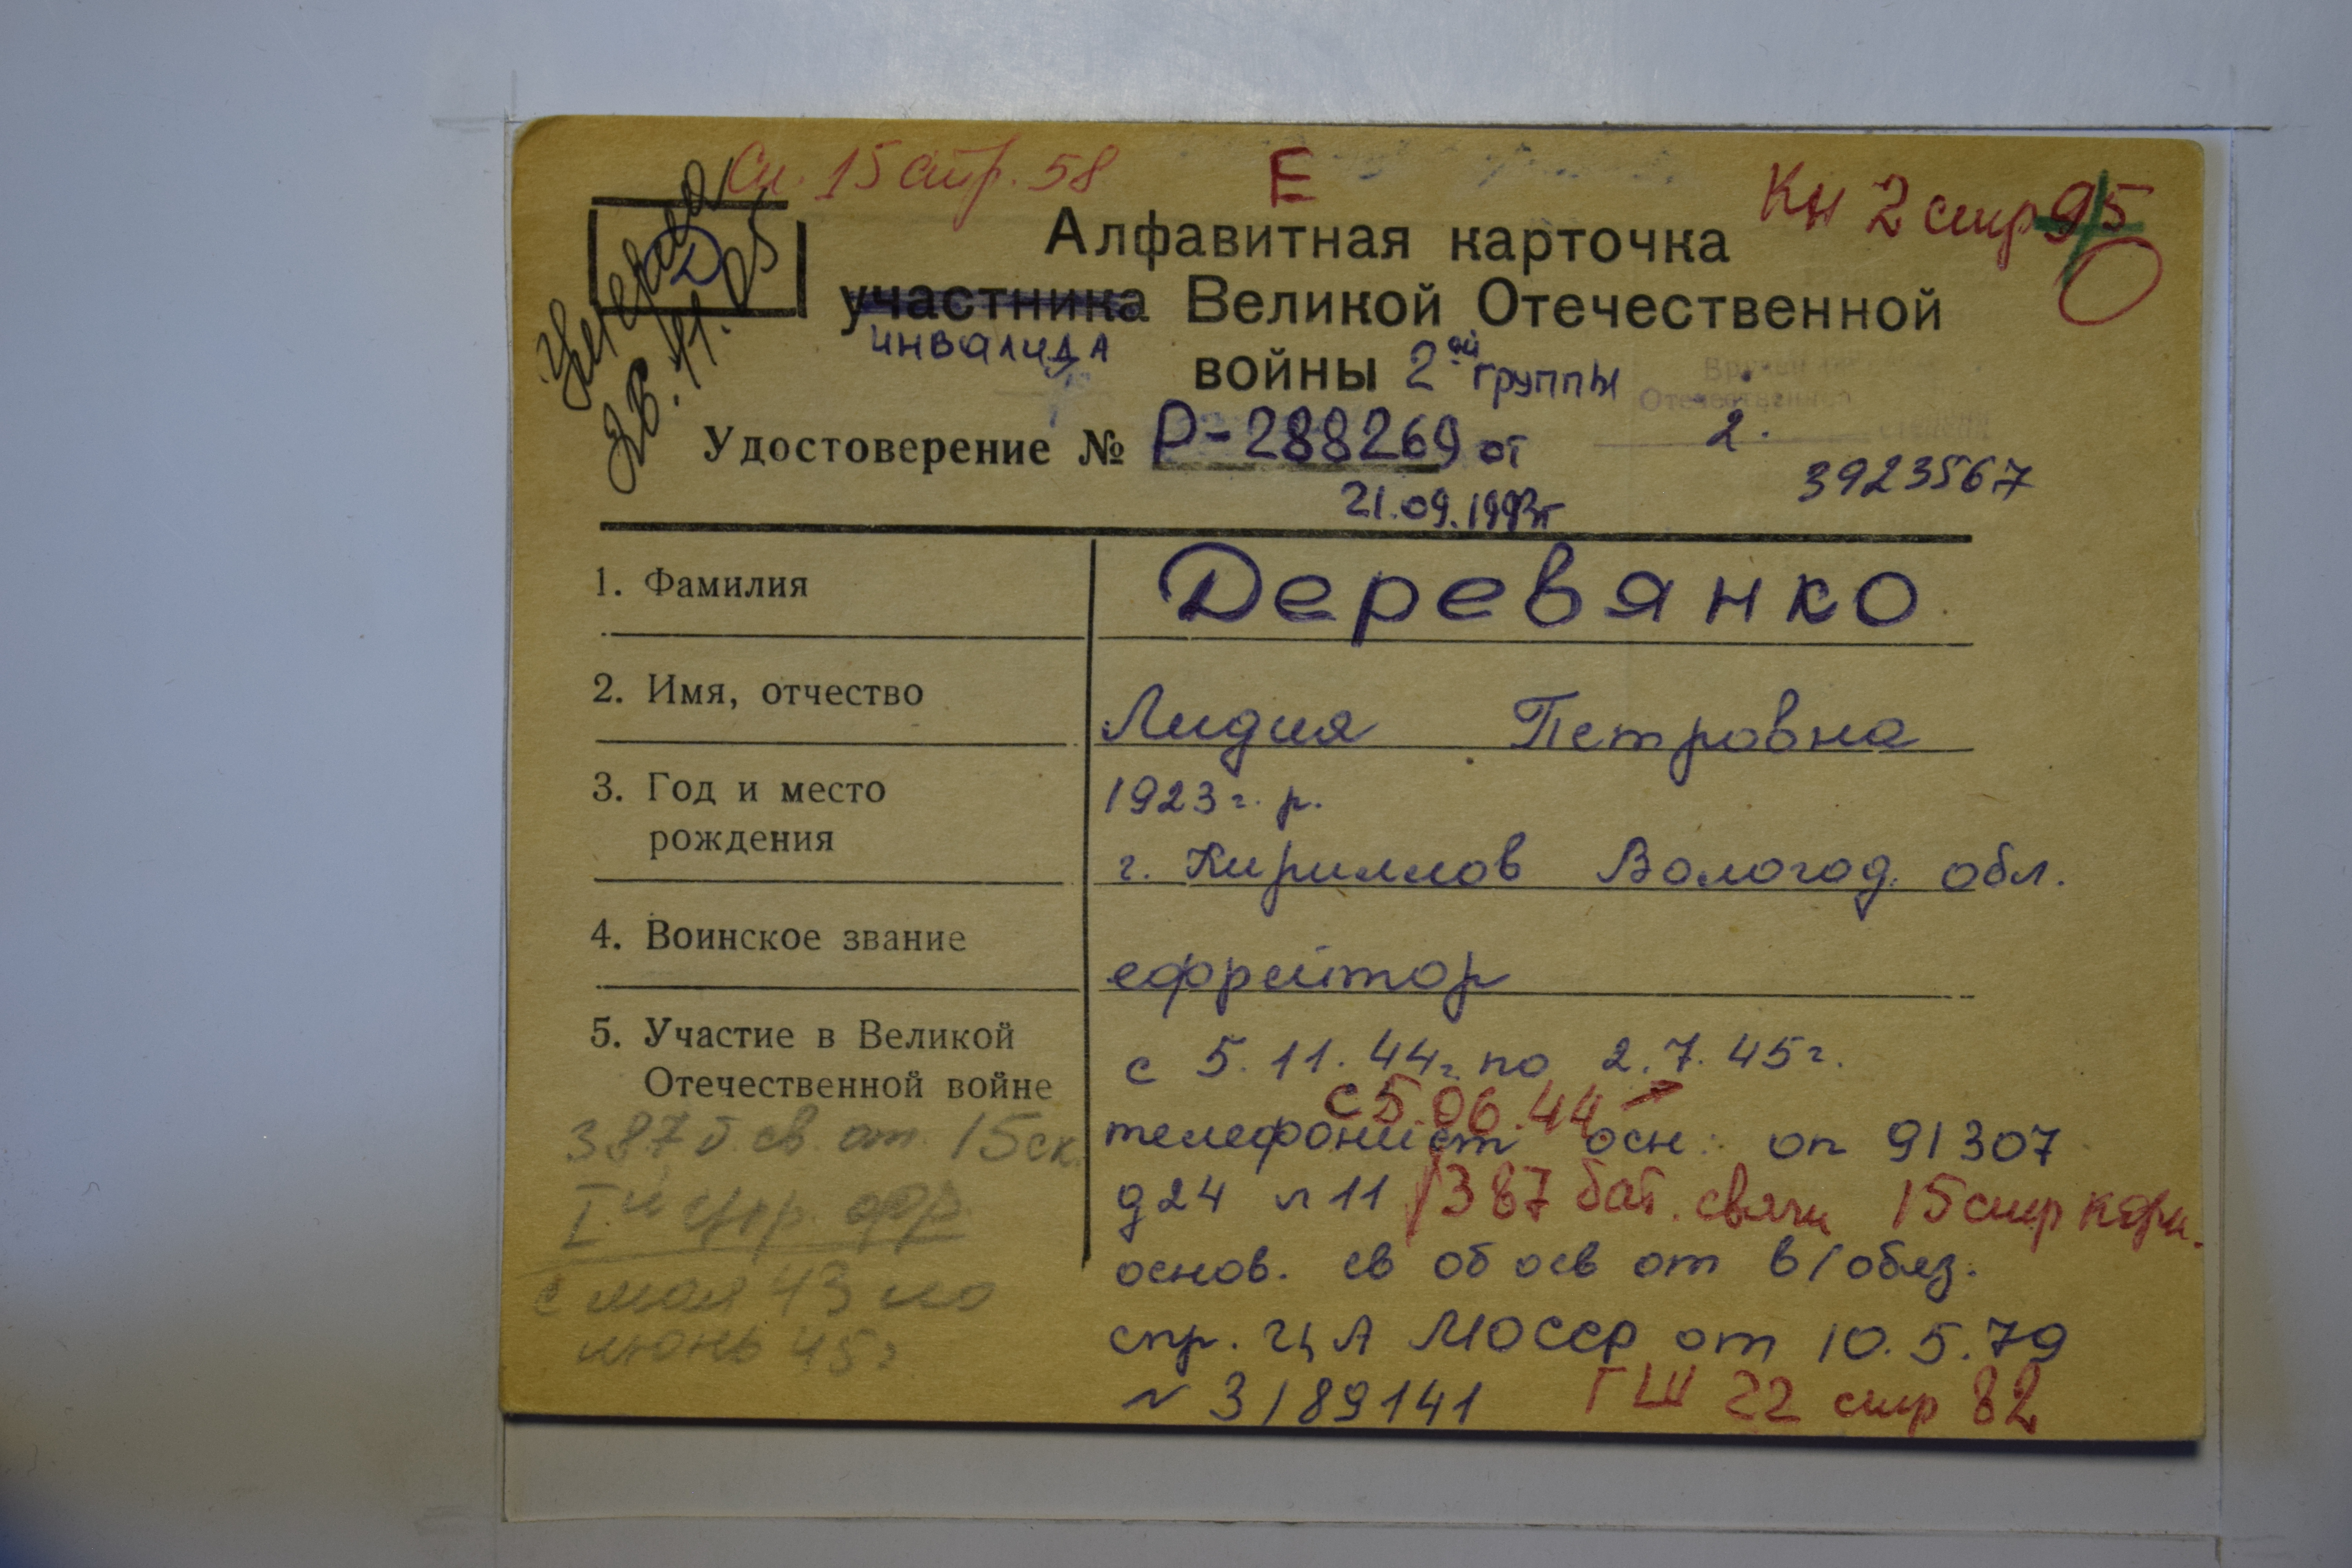 Сп. 15 стр. 58
Е
Кн 2 стр 95
Д
умерла
28.11.05
Алфавитная карточка
участника Великой Отечественной
инвалида
войны 2ой группы
Удостоверение № Р-288269 от
21.09.1993г
2.
3923567
1. Фамилия
Деревянко
2. Имя, отчество
Лидия Петровна
3. Год и место
рождения
1923 г. р.
г. Кириллов Вологод. обл.
4. Воинское звание
ефрейтор
5. Участие в Великой
Отечественной войне
с 5.11.44г. по 2.7.45г.
с 5.06.44
телефонист осн: оп 91307
д24 л11 387 бат. связи 15 стр корп.
основ. св об осв от в/обяз.
спр. ЦА МОССР от 10.5.79
N 3/89141 ГШ 22 стр 82
387 б. св. от. 15 ск.
с мая 43 по
июнь 45г